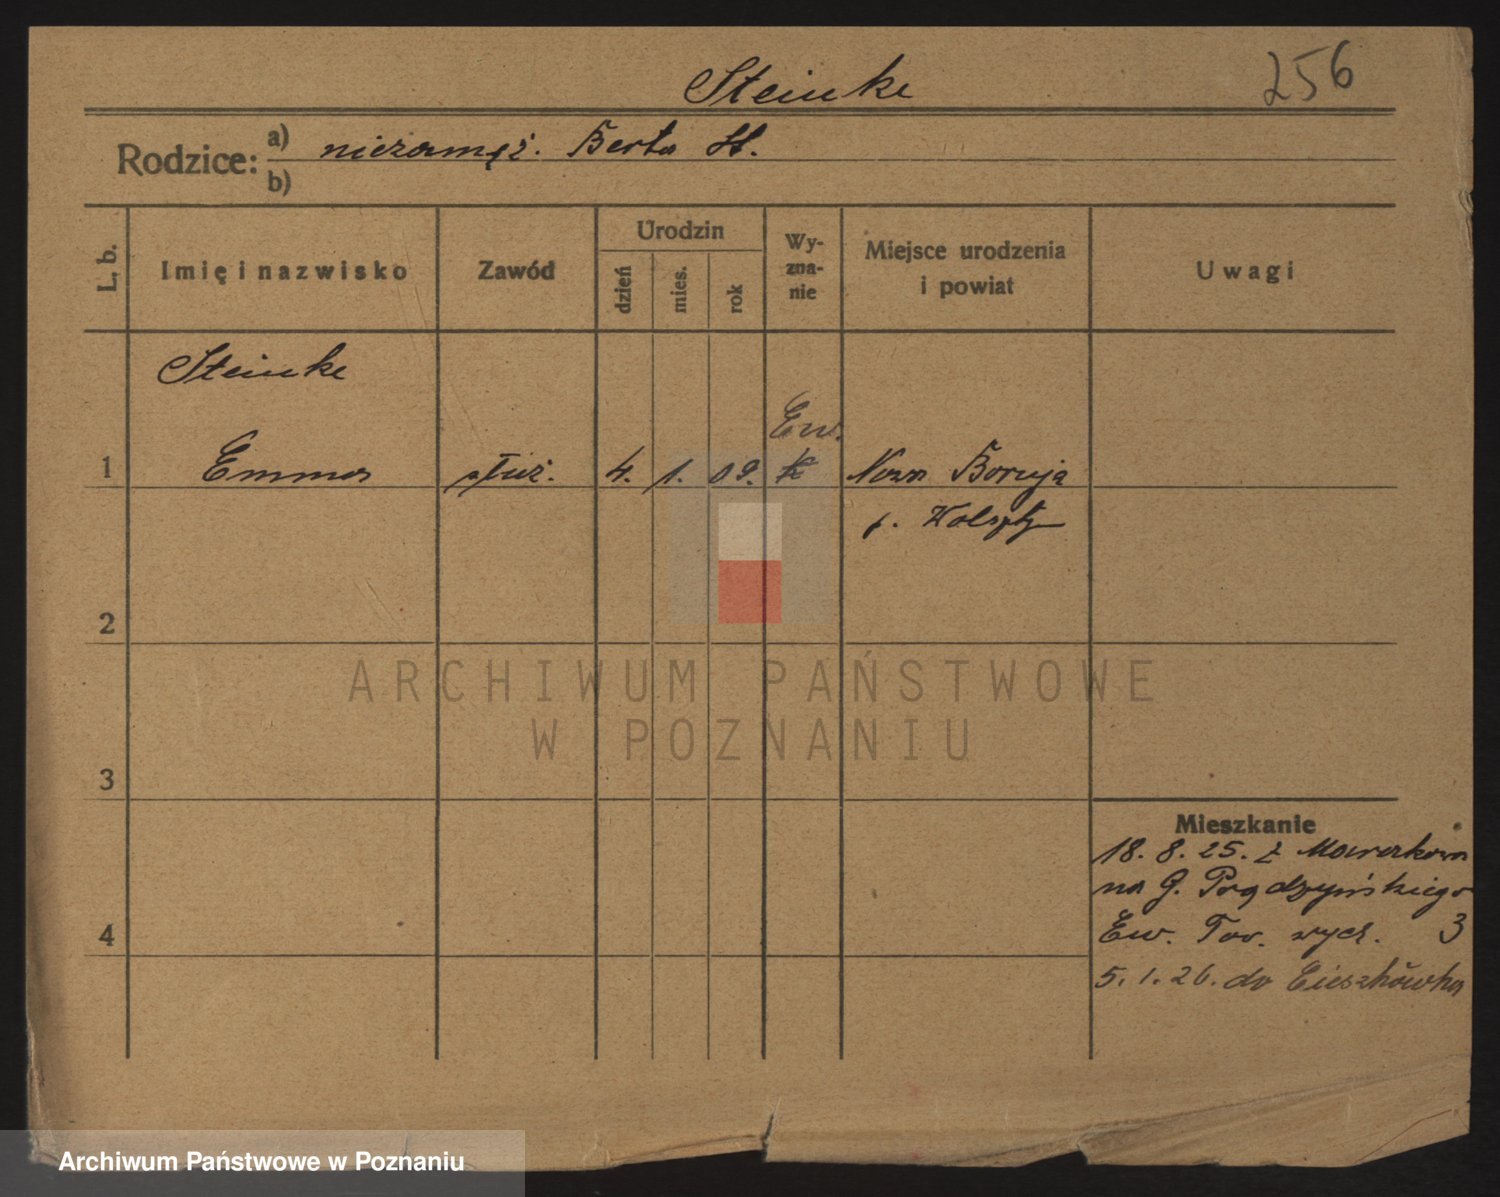 Steinke 256
Rodzice: a) niezamęż. Berta St.
b)
L. b. Imię i nazwisko Zawód Urodzin dzień mies. rok Wy-zna-nie Miejsce urodzenia i powiat Uwagi
Steinke
Ew.
1 Emma służ. 4. 1. 09. k Nowa Boruja
p. Wolszty
2
3
4
Mieszkanie
18. 8. 25. z
na G. Prądzyńskiego
Ew. Tow. wych. 3
5. 1. 26. do Cieszkówka
ARCHIWUM PAŃSTWOWE
W POZNANIU
Archiwum Państwowe w Poznaniu